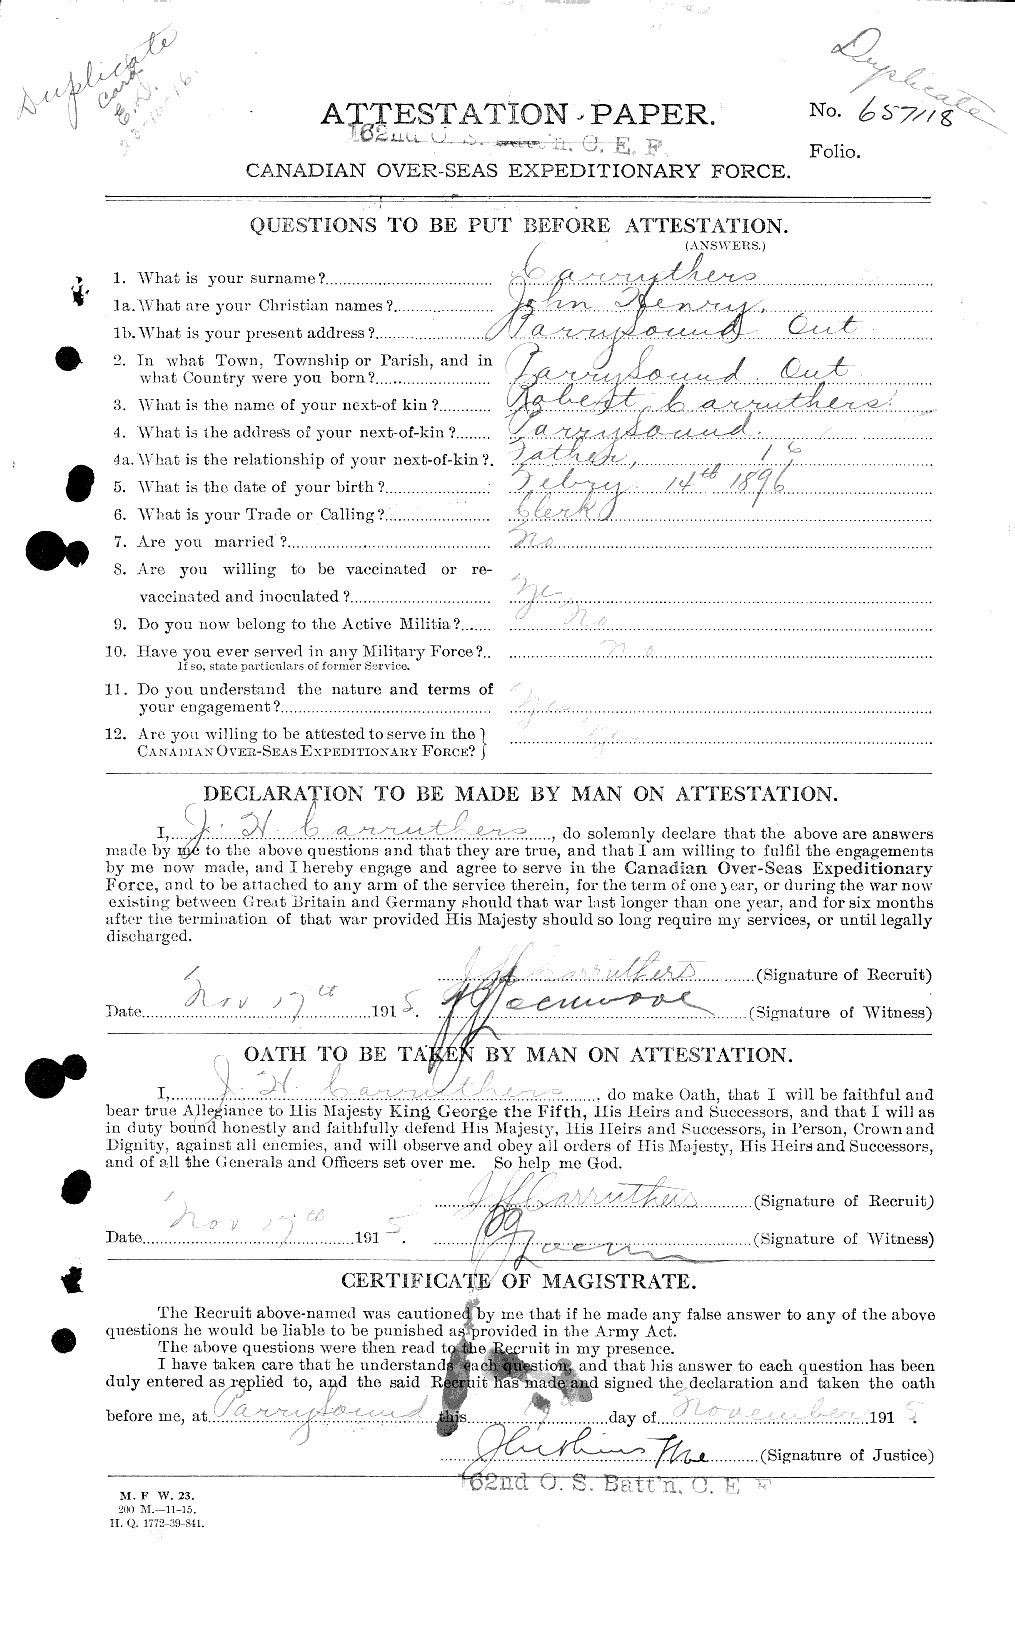 Duplicate
Card
Duplicate
ATTESTATION PAPER.
No. 657118
162nd O. S. Batt'n. C. E. F.
Folio.
CANADIAN OVER-SEAS EXPEDITIONARY FORCE.
QUESTIONS TO BE PUT BEFORE ATTESTATION.
(ANSWERS.)
1. What is your surname? Carruthers
1a. What are your Christian names? John Henry.
1b. What is your present address? Parry Sound Ont
2. In what Town, Township or Parish, and in
what Country were you born? Parry Sound Ont
3. What is the name of your next-of kin? Robert Carruthers
4. What is the address of your next-of-kin? Parry Sound.
4a. What is the relationship of your next-of-kin? Father,
5. What is the date of your birth? Febry 14th 1896
6. What is your Trade or Calling? Clerk
7. Are you married? No
8. Are you willing to be vaccinated or re-
vaccinated and inoculated? Yes
9. Do you now belong to the Active Militia? No
10. Have you ever served in any Military Force? No
If so, state particulars of former Service.
11. Do you understand the nature and terms of
your engagement? Yes
12. Are you willing to be attested to serve in the
CANADIAN OVER-SEAS EXPEDITIONARY FORCE? Yes
DECLARATION TO BE MADE BY MAN ON ATTESTATION.
I, J. H. Carruthers, do solemnly declare that the above are answers
made by me to the above questions and that they are true, and that I am willing to fulfil the engagements
by me now made, and I hereby engage and agree to serve in the Canadian Over-Seas Expeditionary
Force, and to be attached to any arm of the service therein, for the term of one year, or during the war now
existing between Great Britain and Germany should that war last longer than one year, and for six months
after the termination of that war provided His Majesty should so long require my services, or until legally
discharged.
J H Carruthers (Signature of Recruit)
Date Nov 17th 1915. (Signature of Witness)
OATH TO BE TAKEN BY MAN ON ATTESTATION.
I, J. H. Carruthers, do make Oath, that I will be faithful and
bear true Allegiance to His Majesty King George the Fifth, His Heirs and Successors, and that I will as
in duty bound honestly and faithfully defend His Majesty, His Heirs and Successors, in Person, Crown and
Dignity, against all enemies, and will observe and obey all orders of His Majesty, His Heirs and Successors,
and of all the Generals and Officers set over me. So help me God.
J H Carruthers (Signature of Recruit)
Date Nov 17th 1915. (Signature of Witness)
CERTIFICATE OF MAGISTRATE.
The Recruit above-named was cautioned by me that if he made any false answer to any of the above
questions he would be liable to be punished as provided in the Army Act.
The above questions were then read to the Recruit in my presence.
I have taken care that he understands each question, and that his answer to each question has been
duly entered as replied to, and the said Recruit has made and signed the declaration and taken the oath
before me, at Parry Sound this day of November 1915.
(Signature of Justice)
162nd O. S. Batt'n. C. E. F.
M. F W. 23.
200 M.—11-15.
H. Q. 1772-39-841.